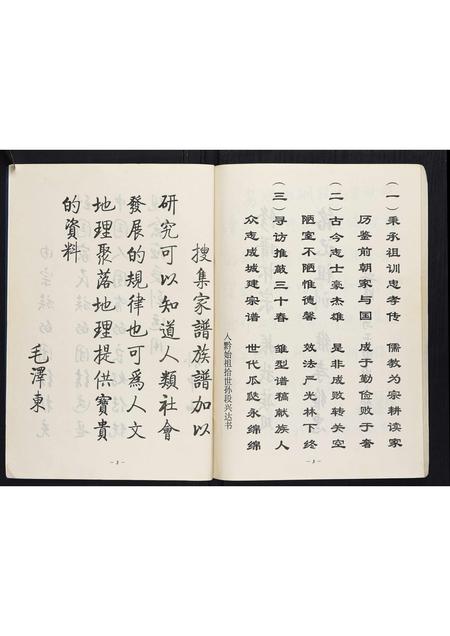 （一）秉承祖训忠孝传　儒教为宗耕读家
历鉴前朝家与国　成于勤俭败于奢
（二）古今志士豪杰雄　是非成败转关空
陋室不陋惟德馨　效法严光林下终
（三）寻访推敲三十春　雏型谱稿献族人
众志成城建宗谱　世代瓜瓞永绵绵
入黔始祖拾世孙段兴达书
- 3 -
搜集家譜族譜加以
研究可以知道人類社會
發展的規律也可爲人文
地理聚落地理提供寶貴
的資料
毛澤東